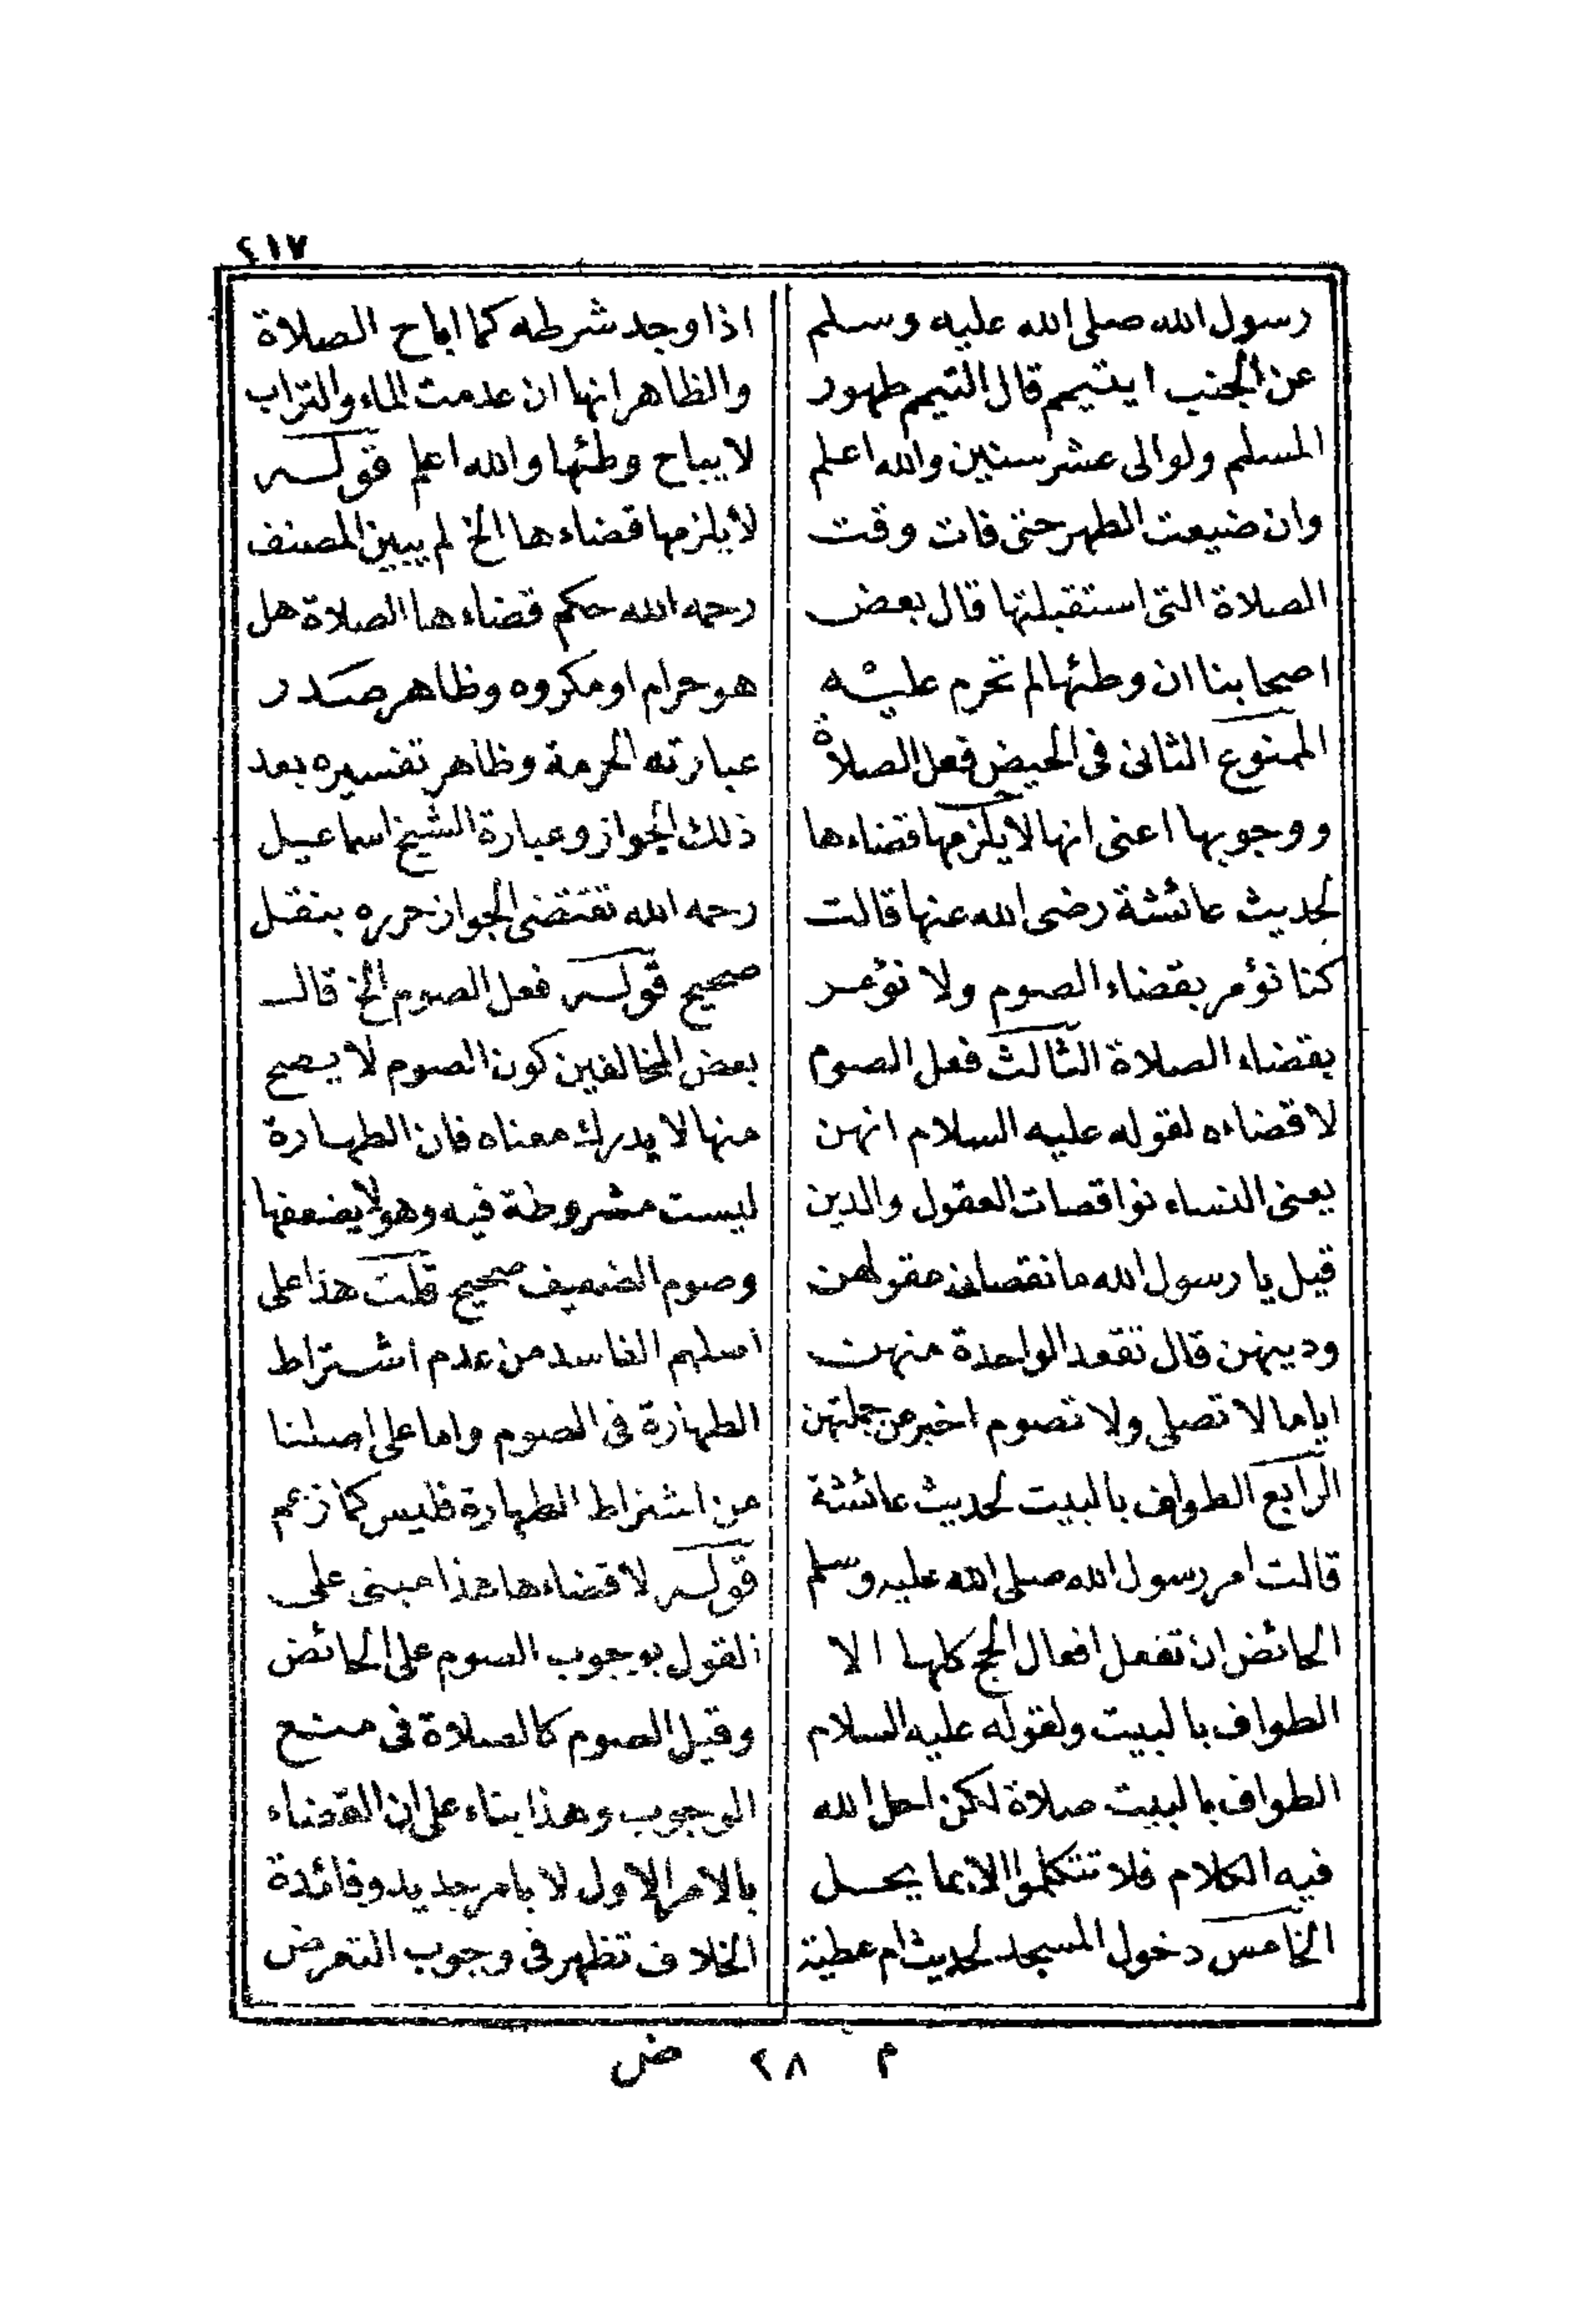 ٤١٧
رسول الله صلى الله عليه وسلم
عن الجنب ايتيمم قال التيمم طهور
المسلم ولو الى عشر سنين والله اعلم
وان ضيعت الطهر حتى فات وقت
الصلاة التى استقبلتها قال بعض
اصحابنا ان وطئها لم تحرم عليه
الممنوع الثانى فى الحيض فعل الصلاة
ووجوبها اعنى انها لا يلزمها قضاءها
لحديث عائشة رضى الله عنها قالت
كنا نؤمر بقضاء الصوم ولا نؤمر
بقضاء الصلاة الثالث فعل الصوم
لا قضاءه لقوله عليه السلام انهن
يعنى النساء نواقصات العقول والدين
قيل يا رسول الله ما نقصان عقولهن
ودينهن قال تقعد الواحدة منهن
اياما لا تصلى ولا تصوم اخبر عن جملتهن
الرابع الطواف بالبيت لحديث عائشة
قالت امر رسول الله صلى الله عليه وسلم
الحائض ان تفعل افعال الحج كلها الا
الطواف بالبيت ولقوله عليه السلام
الطواف بالبيت صلاة لكن احل الله
فيه الكلام فلا تتكلموا الا بما يحسن
الخامس دخول المسجد لحديث ام عطية
اذا وجد شرطه كما اباح الصلاة
والظاهر انها ان عدمت الماء والتراب
لا يباح وطئها والله اعلم قوله
لا يلزمها قضاءها الخ لم يبين المصنف
رحمه الله حكم قضاءها الصلاة هل
هو حرام او مكروه وظاهر صدر
عبارته الحرمة وظاهر تفسيره بعد
ذلك الجواز وعبارة الشيخ اسماعيل
رحمه الله تقتضى الجواز حرره بنقل
صحيح قوله فعل الصوم الخ قال
بعض المخالفين كون الصوم لا يصح
منها لا يدرك معناه فان الطهارة
ليست مشروطة فيه وهو لا يضعفها
وصوم الضعيف صحيح قلت هذا على
اصلهم الفاسد من عدم اشتراط
الطهارة فى الصوم واما على اصلنا
من اشتراط الطهارة فليس كما زعم
قوله لا قضاءها هذا مبنى على
القول بوجوب الصوم على الحائض
وقيل الصوم كالصلاة فى منع
الوجوب وهذا بناء على ان القضاء
بالامر الاول لا بامر جديد وفائدة
الخلاف تظهر فى وجوب التعرض
م ٢٨ ض